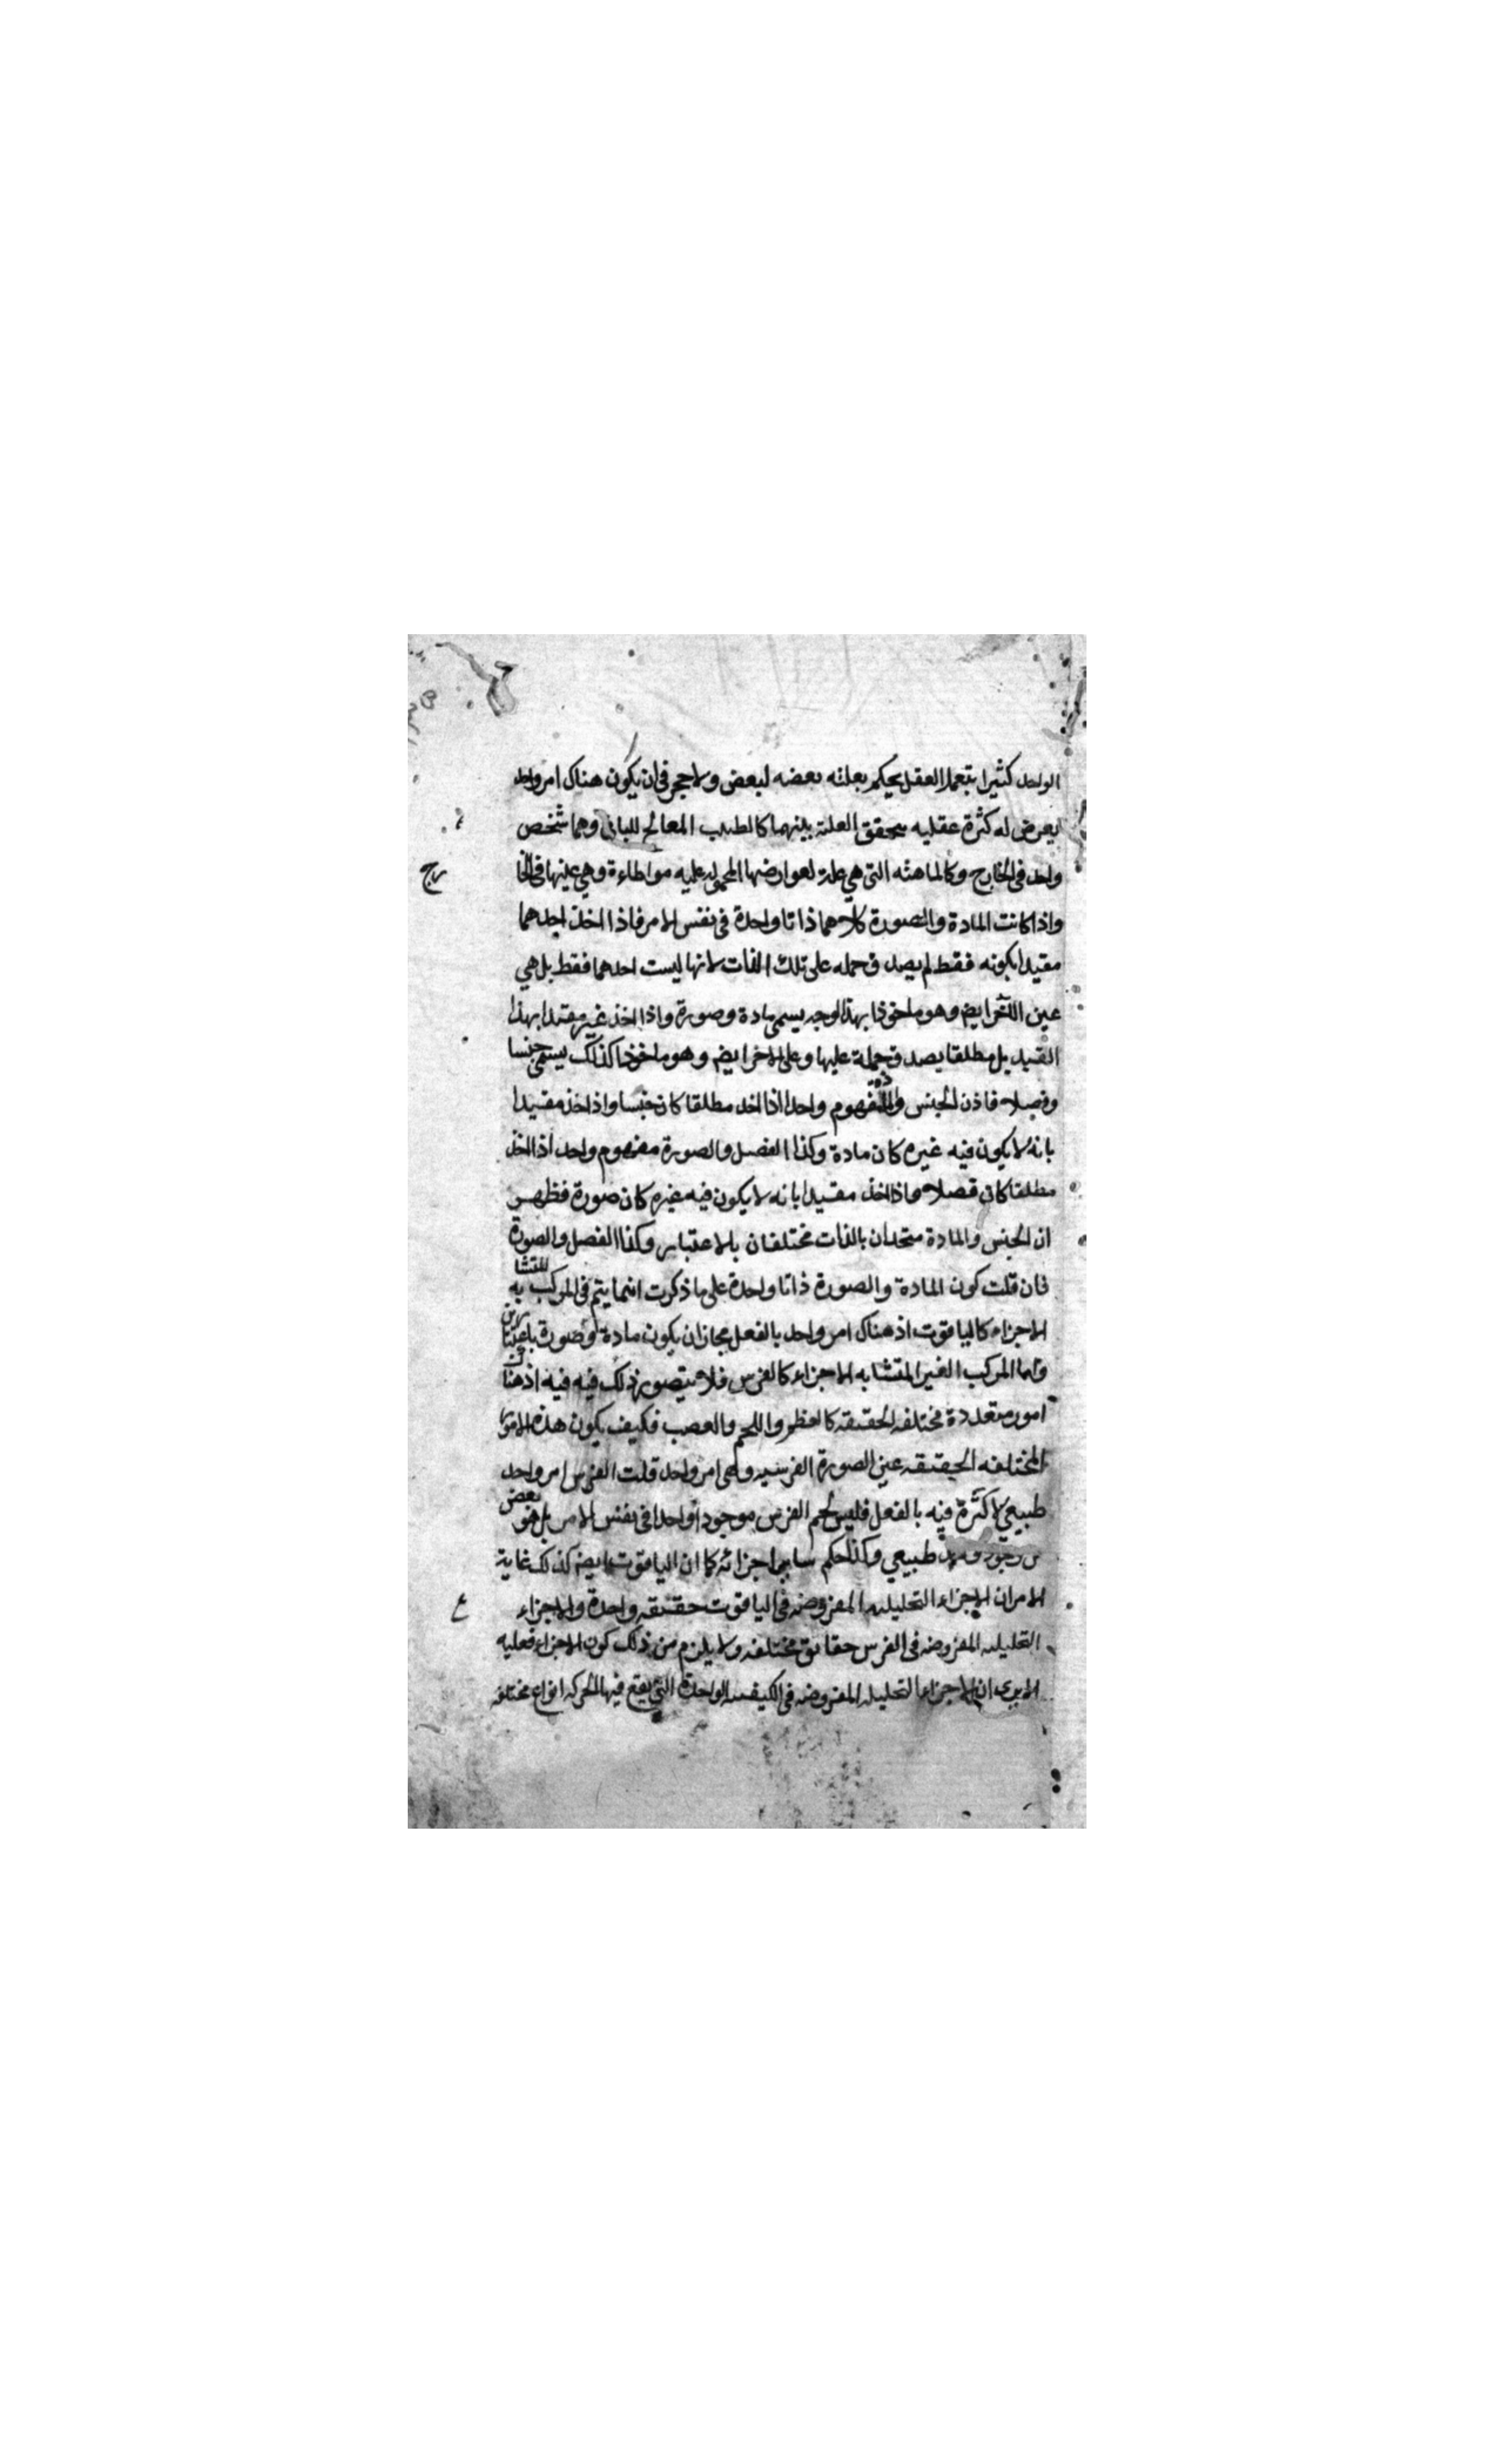 الواحد كثيرا بتعمل العقل يحكم بعلية بعضه لبعض ولا حجر في ان يكون هناك امر واحد
يعرض له كثرة عقليه يتحقق العلية بينهما كالطبيب المعالج للباني وهما شخص
واحد في الخارج وكالماهيه التي هي علة لعوارضها المحموله عليه مواطاءة وهي عينها في الخا
رج
واذا كانت المادة والصورة كلاهما ذاتا واحدة في نفس الامر فاذا اخذ احدهما
مقيدا بكونه فقط لم يصدق حمله على تلك الذات لانها ليست احدهما فقط بل هي
عين الآخر ايض وهو ماخوذا بهذا الوجه يسمى مادة وصورة واذا اخذ غير مقيد بهذا
القيد بل مطلقا يصدق حمله عليها وعلى الاخر ايض وهو ماخوذا كذلك يسمى جنسا
وفصلا فاذن الجنس والمادة مفهوم واحد اذا اخذ مطلقا كان جنسا واذا اخذ مقيدا
بانه لا يكون فيه غيره كان مادة وكذا الفصل والصورة مفهوم واحد اذا اخذ
مطلقا كان فصلا واذا اخذ مقيدا بانه لا يكون فيه غيره كان صورة فظهر
ان الجنس والمادة متحدان بالذات مختلفان بالاعتبار وكذا الفصل والصورة
فان قلت كون المادة والصورة ذاتا واحدة على ما ذكرت انما يتم في المركب المتشابه
الاجزاء كالياقوت اذ هناك امر واحد بالفعل فجاز ان يكون مادة وصورة باعتبارين
واما المركب الغير المتشابه الاجزاء كالفرس فلا يتصور ذلك فيه فيه اذ هناك
امور متعددة مختلفه الحقيقه كالعظم واللحم والعصب فكيف يكون هذه الامور
المختلفه الحقيقه عين الصورة الفرسيه وهي امر واحد قلت الفرس امر واحد
طبيعي لا كثرة فيه بالفعل فليس لحم الفرس موجودا واحدا في نفس الامر بل هو بعض
من موجود واحد طبيعي وكذا حكم ساير اجزائه كما ان الياقوت ايض كذلك غاية
الامر ان الاجزاء التحليليه المفروضه في الياقوت حقيقه واحدة والاجزاء
التحليليه المفروضه في الفرس حقايق مختلفه ولا يلزم من ذلك كون الاجزاء فعليه
الا يرى ان الاجزاء التحليليه المفروضه في الكيفيه الواحدة التي يقع فيها الحركه انواع مختلفه